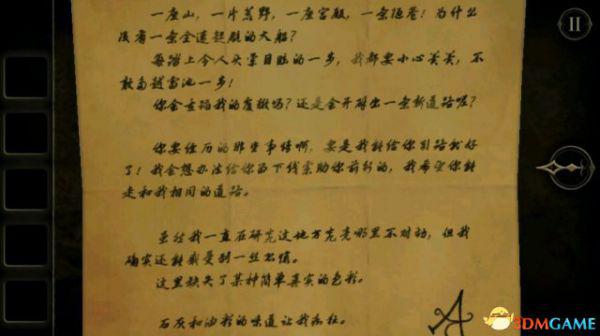 一座山，一片荒野，一座宫殿，一条隧巷！为什么
没有一条全速起航的大船？
每踏上令人头晕目眩的一步，我都要小心关关，不
敢而越雷池一步！
你会重蹈我的覆辙吗？还是会开辟出一条新道路呢？
你要经历的那些事情啊，要是我能给你引路就好
了！我会想办法给你留下线索助你前行的，我希望你能
走和我相同的道路。
虽然我一直在研究这地方究竟哪里不对劲，但我
确实还能感受到一丝怀旧。
这里缺失了某种简单真实的色彩。
石灰和油彩的味道让我
A
3DMGAME